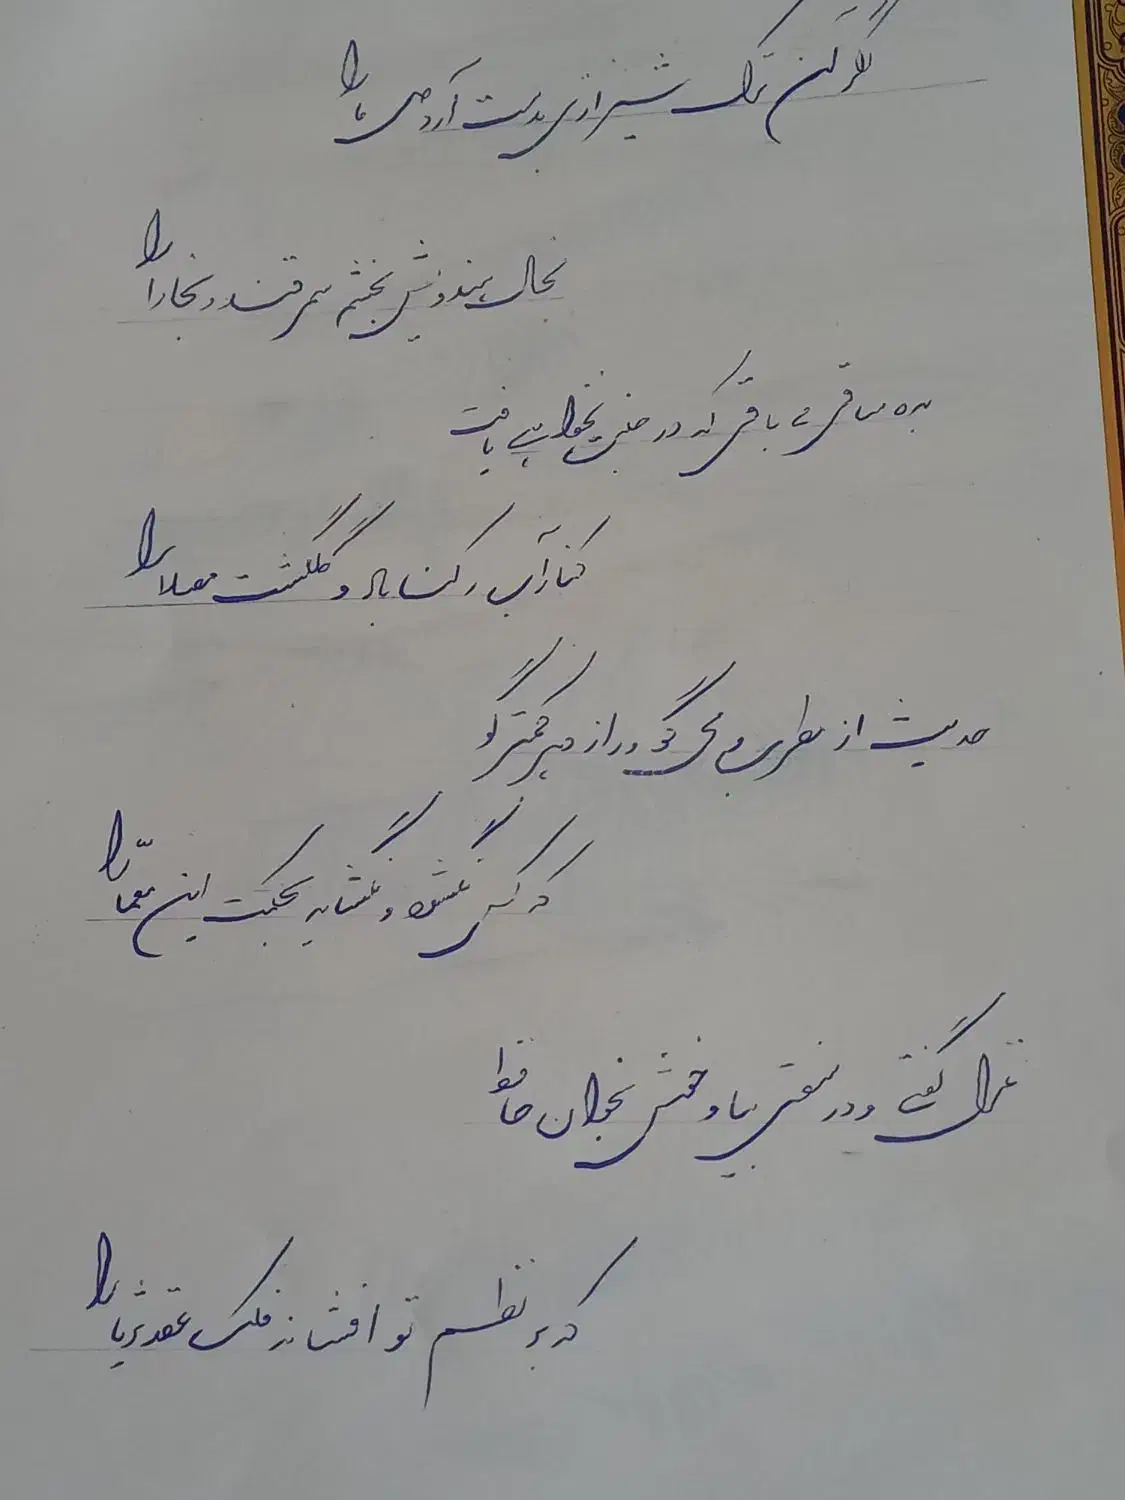 اگر آن ترک شیرازی بدست آرد دل ما را
بخال هندویش بخشم سمرقند و بخارا را
بده ساقی می باقی که در جنت نخواهی یافت
کنار آب رکناباد و گلگشت مصلا را
حدیث از مطرب و می گو و راز دهر کمتر گو
که کس نگشود و نگشاید بحکمت این معمّا را
غزل گفتی و در سفتی بیا و خوش بخوان حافظ
که بر نظم تو افشاند فلک عقد ثریا را